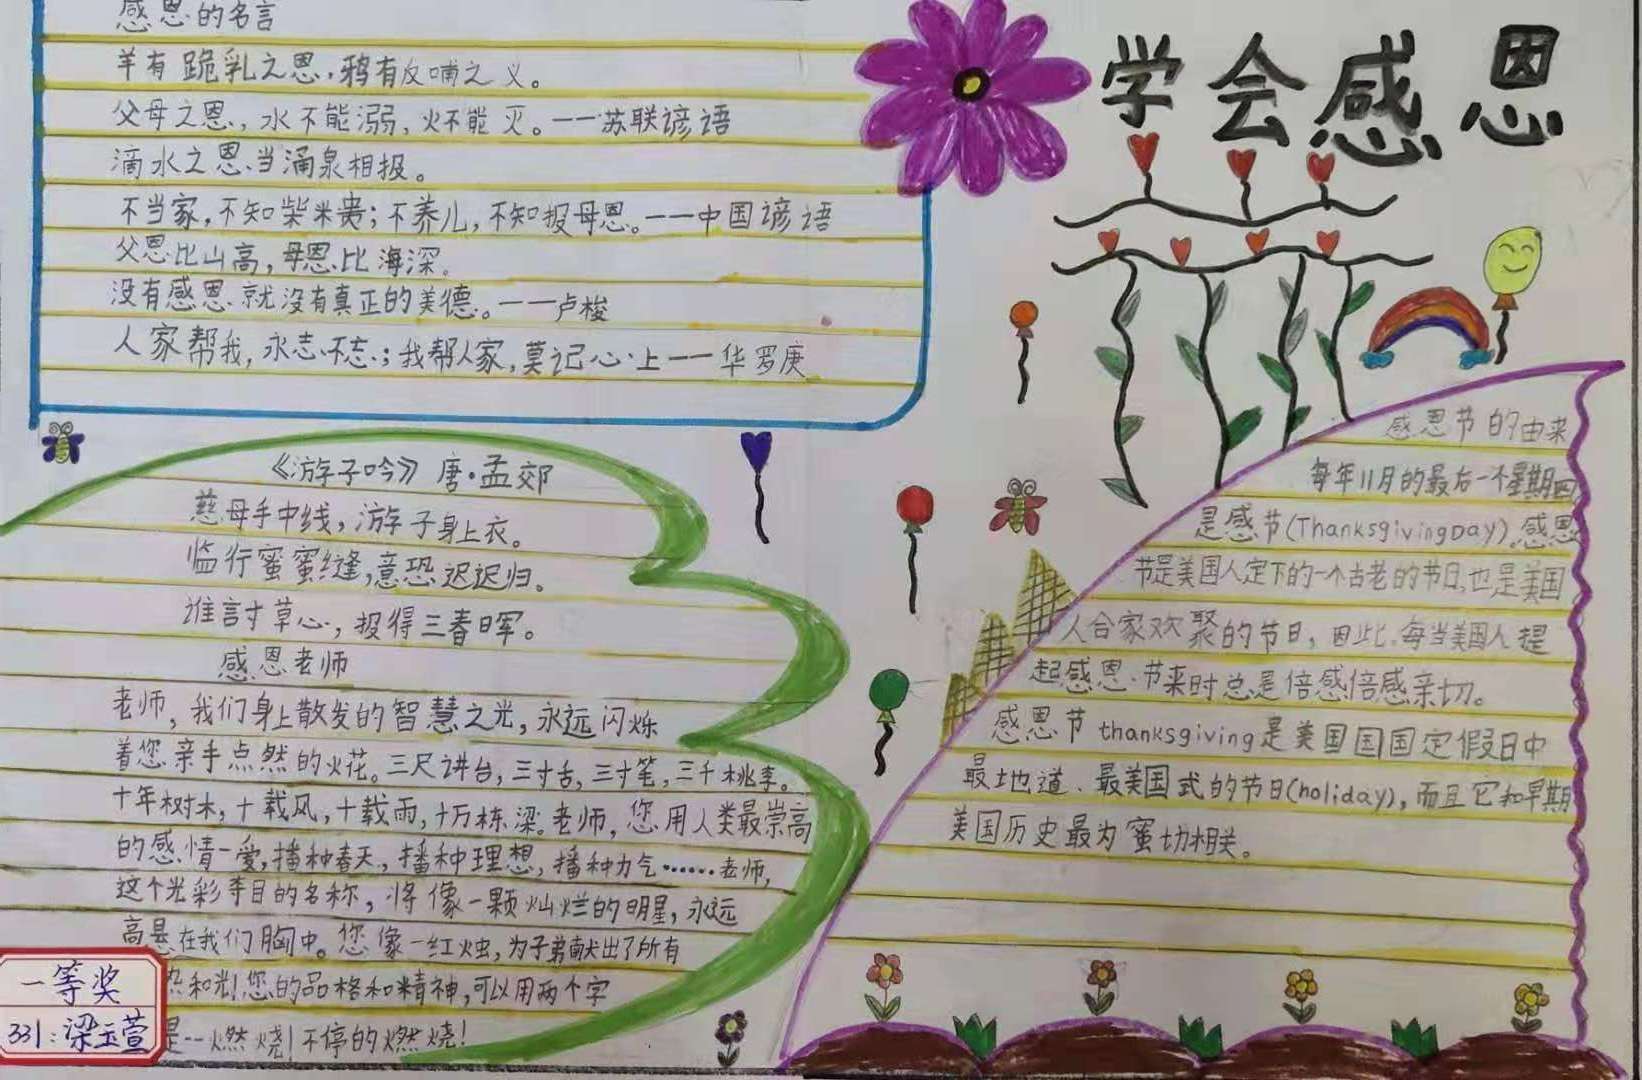 学会感恩
感恩的名言
羊有跪乳之恩，鸦有反哺之义。
父母之恩，水不能溺，火不能灭。——苏联谚语
滴水之恩、当涌泉相报。
不当家，不知柴米贵；不养儿，不知报母恩。——中国谚语
父恩比山高，母恩比海深。
没有感恩就没有真正的美德。——卢梭
人家帮我，永志不忘；我帮人家，莫记心上——华罗庚
《游子吟》唐·孟郊
慈母手中线，游子身上衣。
临行蜜蜜缝，意恐迟迟归。
谁言寸草心，报得三春晖。
感恩老师
老师，我们身上散发的智慧之光，永远闪烁
着您亲手点然的火花。三尺讲台，三寸舌，三寸笔，三千桃李。
十年树木，十载风，十载雨，十万栋梁。老师，您用人类最崇高
的感情一爱，播种春天，播种理想，播种力气……老师，
这个光彩夺目的名称，将像一颗灿烂的明星，永远
高悬在我们胸中。您像一红烛，为子弟献出了所有
热和光！您的品格和精神，可以用两个字
是--燃烧！不停的燃烧！
一等奖
331：梁玉萱
感恩节的由来
每年11月的最后一个星期四
是感节(ThanksgivingDay)。感恩
节是美国人定下的一个古老的节日，也是美国
人合家欢聚的节日，因此，每当美国人提
起感恩节来时总是倍感倍感亲切。
感恩节thanksgiving是美国国国定假日中
最地道、最美国式的节日(holiday)，而且它和早期
美国历史最为蜜切相关。